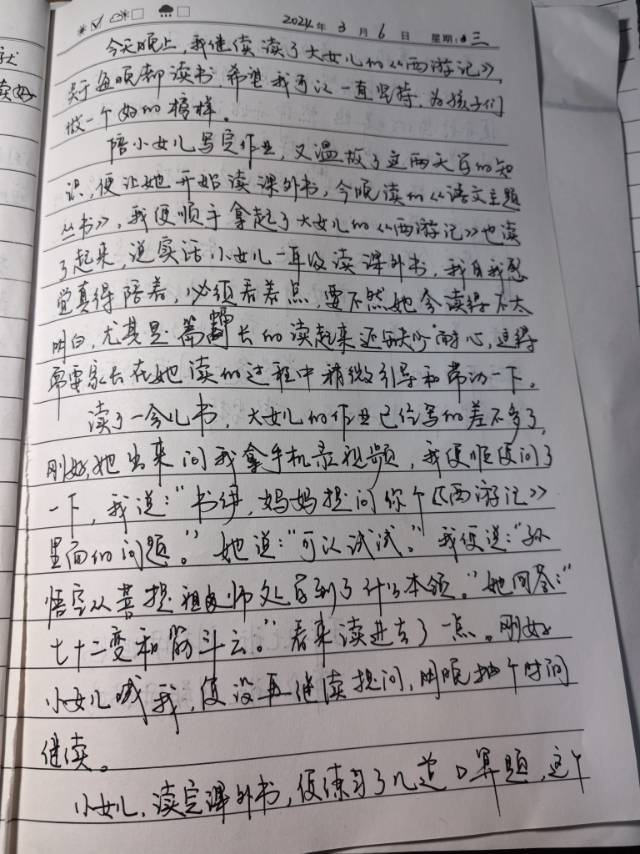 2024年 3月 6日 星期:三
今天晚上，我继续读了大女儿的《西游记》，
关于每晚都读书，希望我可以一直坚持，为孩子们
做一个好的榜样。
陪小女儿写完作业，又温故了这两天学的知
识，便让她开始读课外书，今晚读的《语文主题
丛书》，我便顺手拿起了大女儿的《西游记》也读
了起来，说实话，小女儿一年级读课外书，我自我感
觉真得陪着，必须看着点，要不然她会读得不太
明白，尤其是篇幅长的读起来还缺少耐心，这得
需要家长在她读的过程中稍微引导和帮助一下。
读了一会儿书，大女儿的作业已经写的差不多了，
刚好她出来问我拿手机录视频，我便顺便问了
一下，我说：“书绮，妈妈提问你个《西游记》
里面的问题。”她说：“可以试试。”我便说：“孙
悟空从菩提祖师处学到了什么本领。”她回答：“
七十二变和筋斗云。”看来读进去了一点。刚好
小女儿喊我，便没再继续提问，明晚抽个时间
继续。
小女儿，读完课外书，便练习了几道口算题，这个
读好